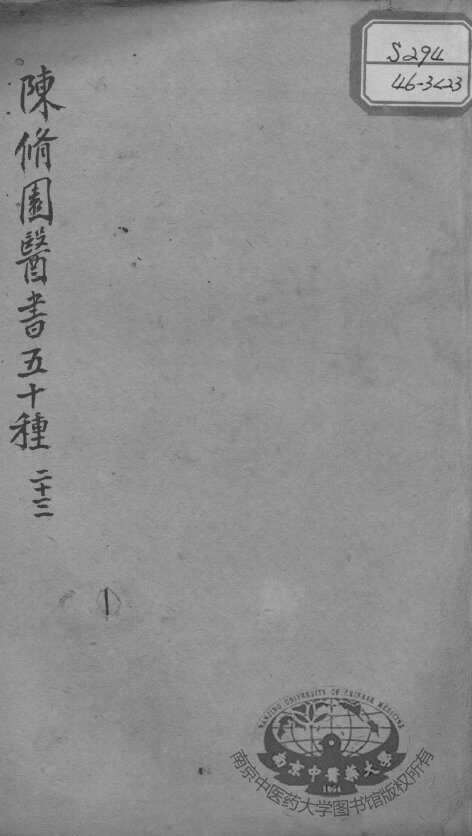 S294
46-3<23
陳脩園醫書五十種 二十三
NANJING UNIVERSITY OF CHINESE MEDICINE
南京中醫藥大學
1954
南京中医药大学图书馆版权所有